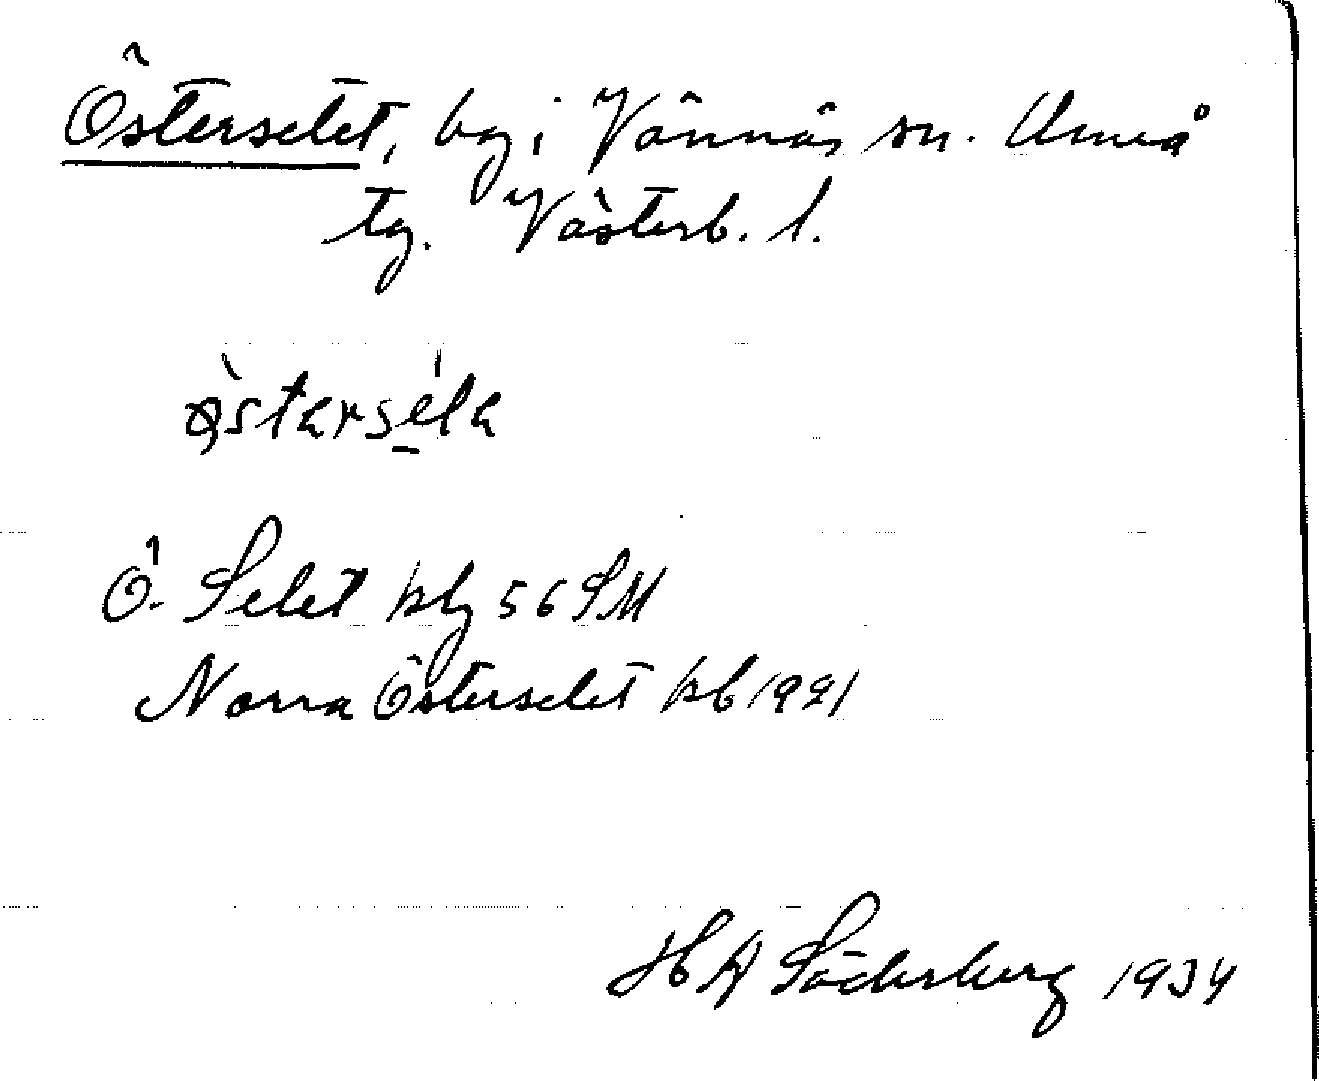 Österselet, by i Vännäs sn. Umeå
tg. Västerb. l.
Ö. Selet kbg 56 SM
Norra Österselet kb 1921
H A Söderberg 1934